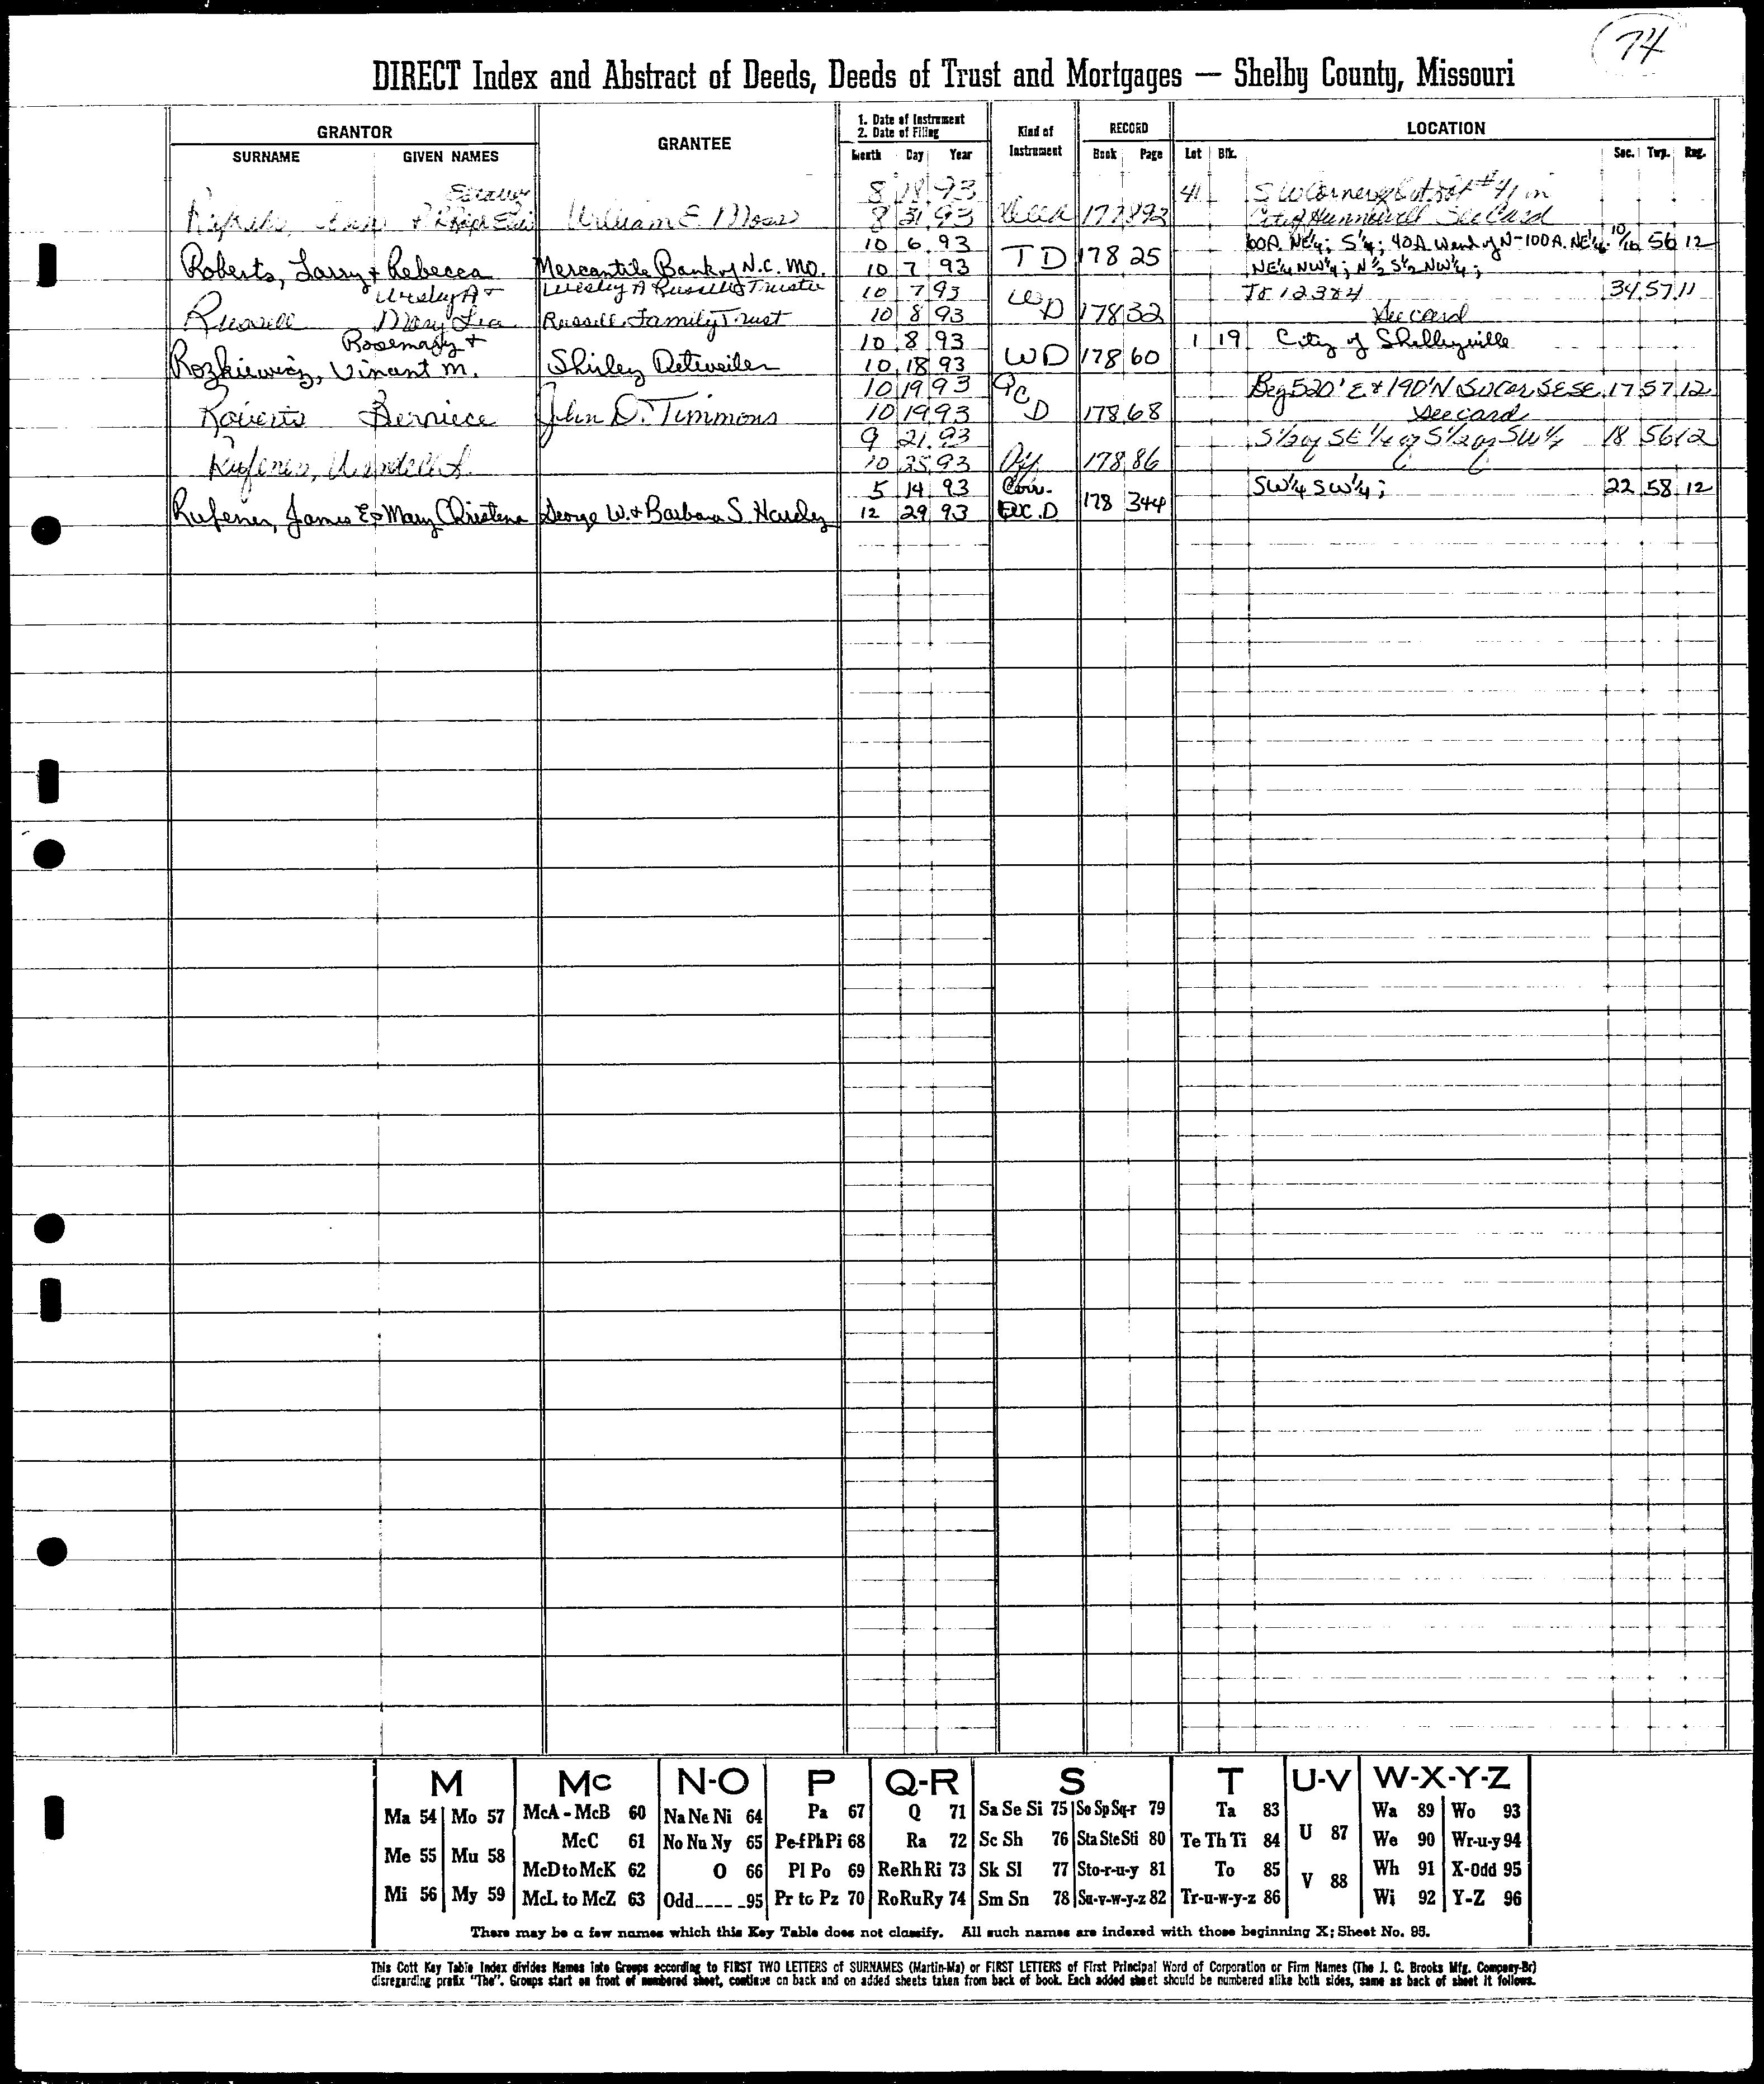 74
DIRECT Index and Abstract of Deeds, Deeds of Trust and Mortgages — Shelby County, Missouri
GRANTOR GRANTEE 1. Date of Instrument 2. Date of Filing Kind of Instrument RECORD LOCATION
SURNAME GIVEN NAMES Month Day Year Book Page Lot Blk. Sec. Twp. Rng.
8 18 93 41 SW Corner Out Lot #41 in
William E. Moss 8 31 93 177 892 City of Hunnewell See Card
10 6 93 60A. NE¼; S¼; 40A. West of N-100A. NE¼ 10/10 56 12
Roberts, Larry + Rebecca Mercantile Bank of N.C. MO. 10 7 93 TD 178 25 NE¼ NW¼; N½ S½ NW¼;
Wesley A + Wesley A Russell Trustee 10 7 93 Tr 12384 34 57 11
Russell Mary Lea Russell Family Trust 10 8 93 WD 178 32 See card
Rosemary + 10 8 93 1 19 City of Shelbyville
Rozkiewicz, Vinant M. Shirley Detweiler 10 18 93 WD 178 60
10 19 93 QCD Beg 520' E + 190' N SW Cor SE SE 17 57 12
Roberts Berniece John D. Timmons 10 19 93 178 68 See card
9 21 93 S 1/2 of SE 1/4 of S 1/2 of SW 1/4 18 56 12
Rufener, Wendell 10 25 93 178 86
5 14 93 Corr. SW¼ SW¼; 22 58 12
Rufener, James E + Mary Christene George W. + Barbara S. Hardy 12 29 93 178 344
M Mc N-O P Q-R S T U-V W-X-Y-Z
Ma 54 Mo 57 McA - McB 60 Na Ne Ni 64 Pa 67 Q 71 Sa Se Si 75 So Sp Sq-r 79 Ta 83 Wa 89 Wo 93
Me 55 Mu 58 McC 61 No Nu Ny 65 Pe-f Ph Pi 68 Ra 72 Sc Sh 76 Sta Ste Sti 80 Te Th Ti 84 U 87 We 90 Wr-u-y 94
McD to McK 62 O 66 Pl Po 69 Re Rh Ri 73 Sk Sl 77 Sto-r-u-y 81 To 85 V 88 Wh 91 X-Odd 95
Mi 56 My 59 McL to McZ 63 Odd 95 Pr to Pz 70 Ro Ru Ry 74 Sm Sn 78 Su-v-w-y-z 82 Tr-u-w-y-z 86 Wi 92 Y-Z 96
There may be a few names which this Key Table does not classify. All such names are indexed with those beginning X; Sheet No. 95.
This Cott Key Table Index divides Names into Groups according to FIRST TWO LETTERS of SURNAMES (Martin-Ma) or FIRST LETTERS of First Principal Word of Corporation or Firm Names (The J. C. Brooks Mfg. Company-Br)
disregarding prefix "The". Groups start on front of numbered sheet, continue on back and on added sheets taken from back of book. Each added sheet should be numbered alike both sides, same as back of sheet it follows.